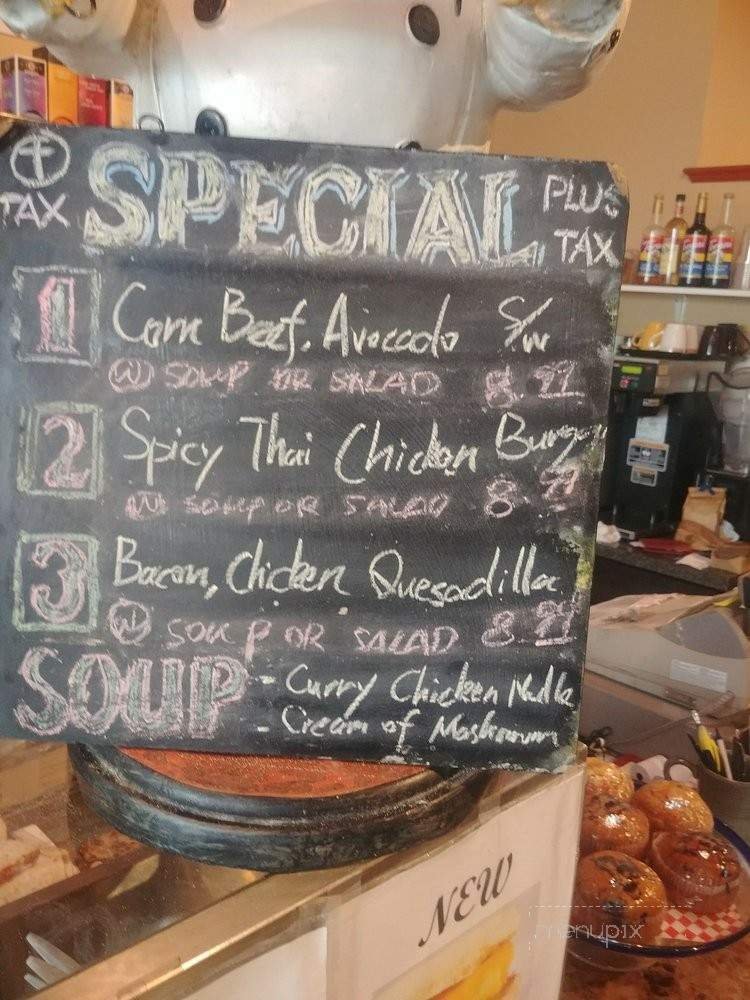 +
TAX
SPECIAL
PLUS
TAX
1
Corn Beef, Avocado S/W
W SOUP OR SALAD 8.99
2
Spicy Thai Chicken Burger
W SOUP OR SALAD 8.99
3
Bacon, Chicken Quesadilla
W SOUP OR SALAD 8.99
SOUP
- Curry Chicken Nudle
- Cream of Mashroom
NEW
menupix